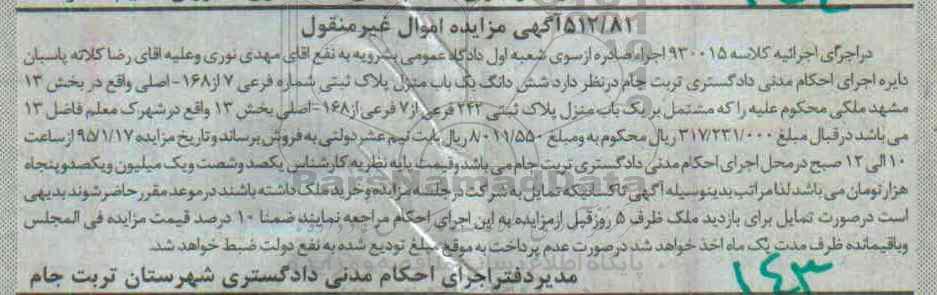 ۵۱۲/۸۱آگهی مزایده اموال غیرمنقول
دراجرای اجرائیه کلاسه ۹۳۰۰۱۵ اجراء صادره ازسوی شعبه اول دادگاه عمومی بسرویه به نفع اقای مهدی نوری وعلیه اقای رضا کلاته پاسبان
دایره اجرای احکام مدنی دادگستری تربت جام درنظر دارد شش دانگ یک باب منزل پلاک ثبتی شماره فرعی ۷ از۱۶۸- اصلی واقع در بخش ۱۳
مشهد ملکی محکوم علیه را که مشتمل بر یک باب منزل پلاک ثبتی ۲۴۲ فرعی از۷ فرعی از۱۶۸-اصلی بخش ۱۳ واقع درشهرک معلم فاضل ۱۳
می باشد درقبال مبلغ ۳۱۷/۲۳۱/۰۰۰ ریال محکوم به ومبلغ ۸/۰۱۱/۵۵۰ ریال بابت نیم عشر دولتی به فروش برساند وتاریخ مزایده ۹۵/۱/۱۷ ازساعت
۱۰ الی ۱۲ صبح درمحل اجرای احکام مدنی دادگستری تربت جام می باشد وقیمت پایه نظر به کارشناس یکصد وشصت ویک میلیون ویکصدوپنجاه
هزارتومان می باشد لذا مراتب بدینوسیله اگهی تاکسانیکه تمایل به شرکت درجلسه مزایده وخرید ملک داشته باشند درموعد مقرر حاضر شوند بدیهی
است درصورت تمایل برای بازدید ملک ظرف ۵ روز قبل ازمزایده به این اجرای احکام مراجعه نمایند ضمنا ۱۰ درصد قیمت مزایده فی المجلس
وباقیمانده ظرف مدت یک ماه اخذ خواهد شد درصورت عدم پرداخت به موقع مبلغ تودیع شده به نفع دولت ضبط خواهد شد.
مدیردفتراجرای احکام مدنی دادگستری شهرستان تربت جام
۱۴۳
ParsNamadData